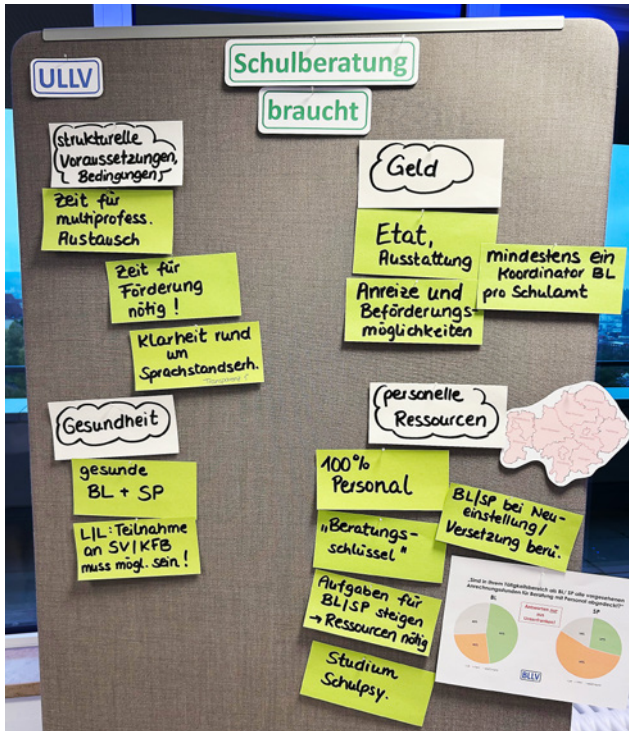 ULLV
Schulberatung
braucht
strukturelle
Voraussetzungen,
Bedingungen
Zeit für
multiprofess.
Austausch
Zeit für
Förderung
nötig !
Klarheit rund
um
Sprachstandserh.
Gesundheit
gesunde
BL + SP
L/L: Teilnahme
an SV/KFB
muss mögl. sein !
Geld
Etat,
Ausstattung
mindestens ein
Koordinator BL
pro Schulamt
Anreize und
Beförderungs-
möglichkeiten
personelle
Ressourcen
100%
Personal
BL/SP bei Neu-
einstellung/
Versetzung berü.
„Beratungs-
schlüssel"
Aufgaben für
BL/SP steigen
→ Ressourcen nötig
Studium
Schulpsy.
„Sind in Ihrem Tätigkeitsbereich als BL/ SP alle vorgesehenen
Anrechnungsstunden für Beratung mit Personal abgedeckt?"
BL
SP
Antworten nur
aus
Unterfranken!
BLLV